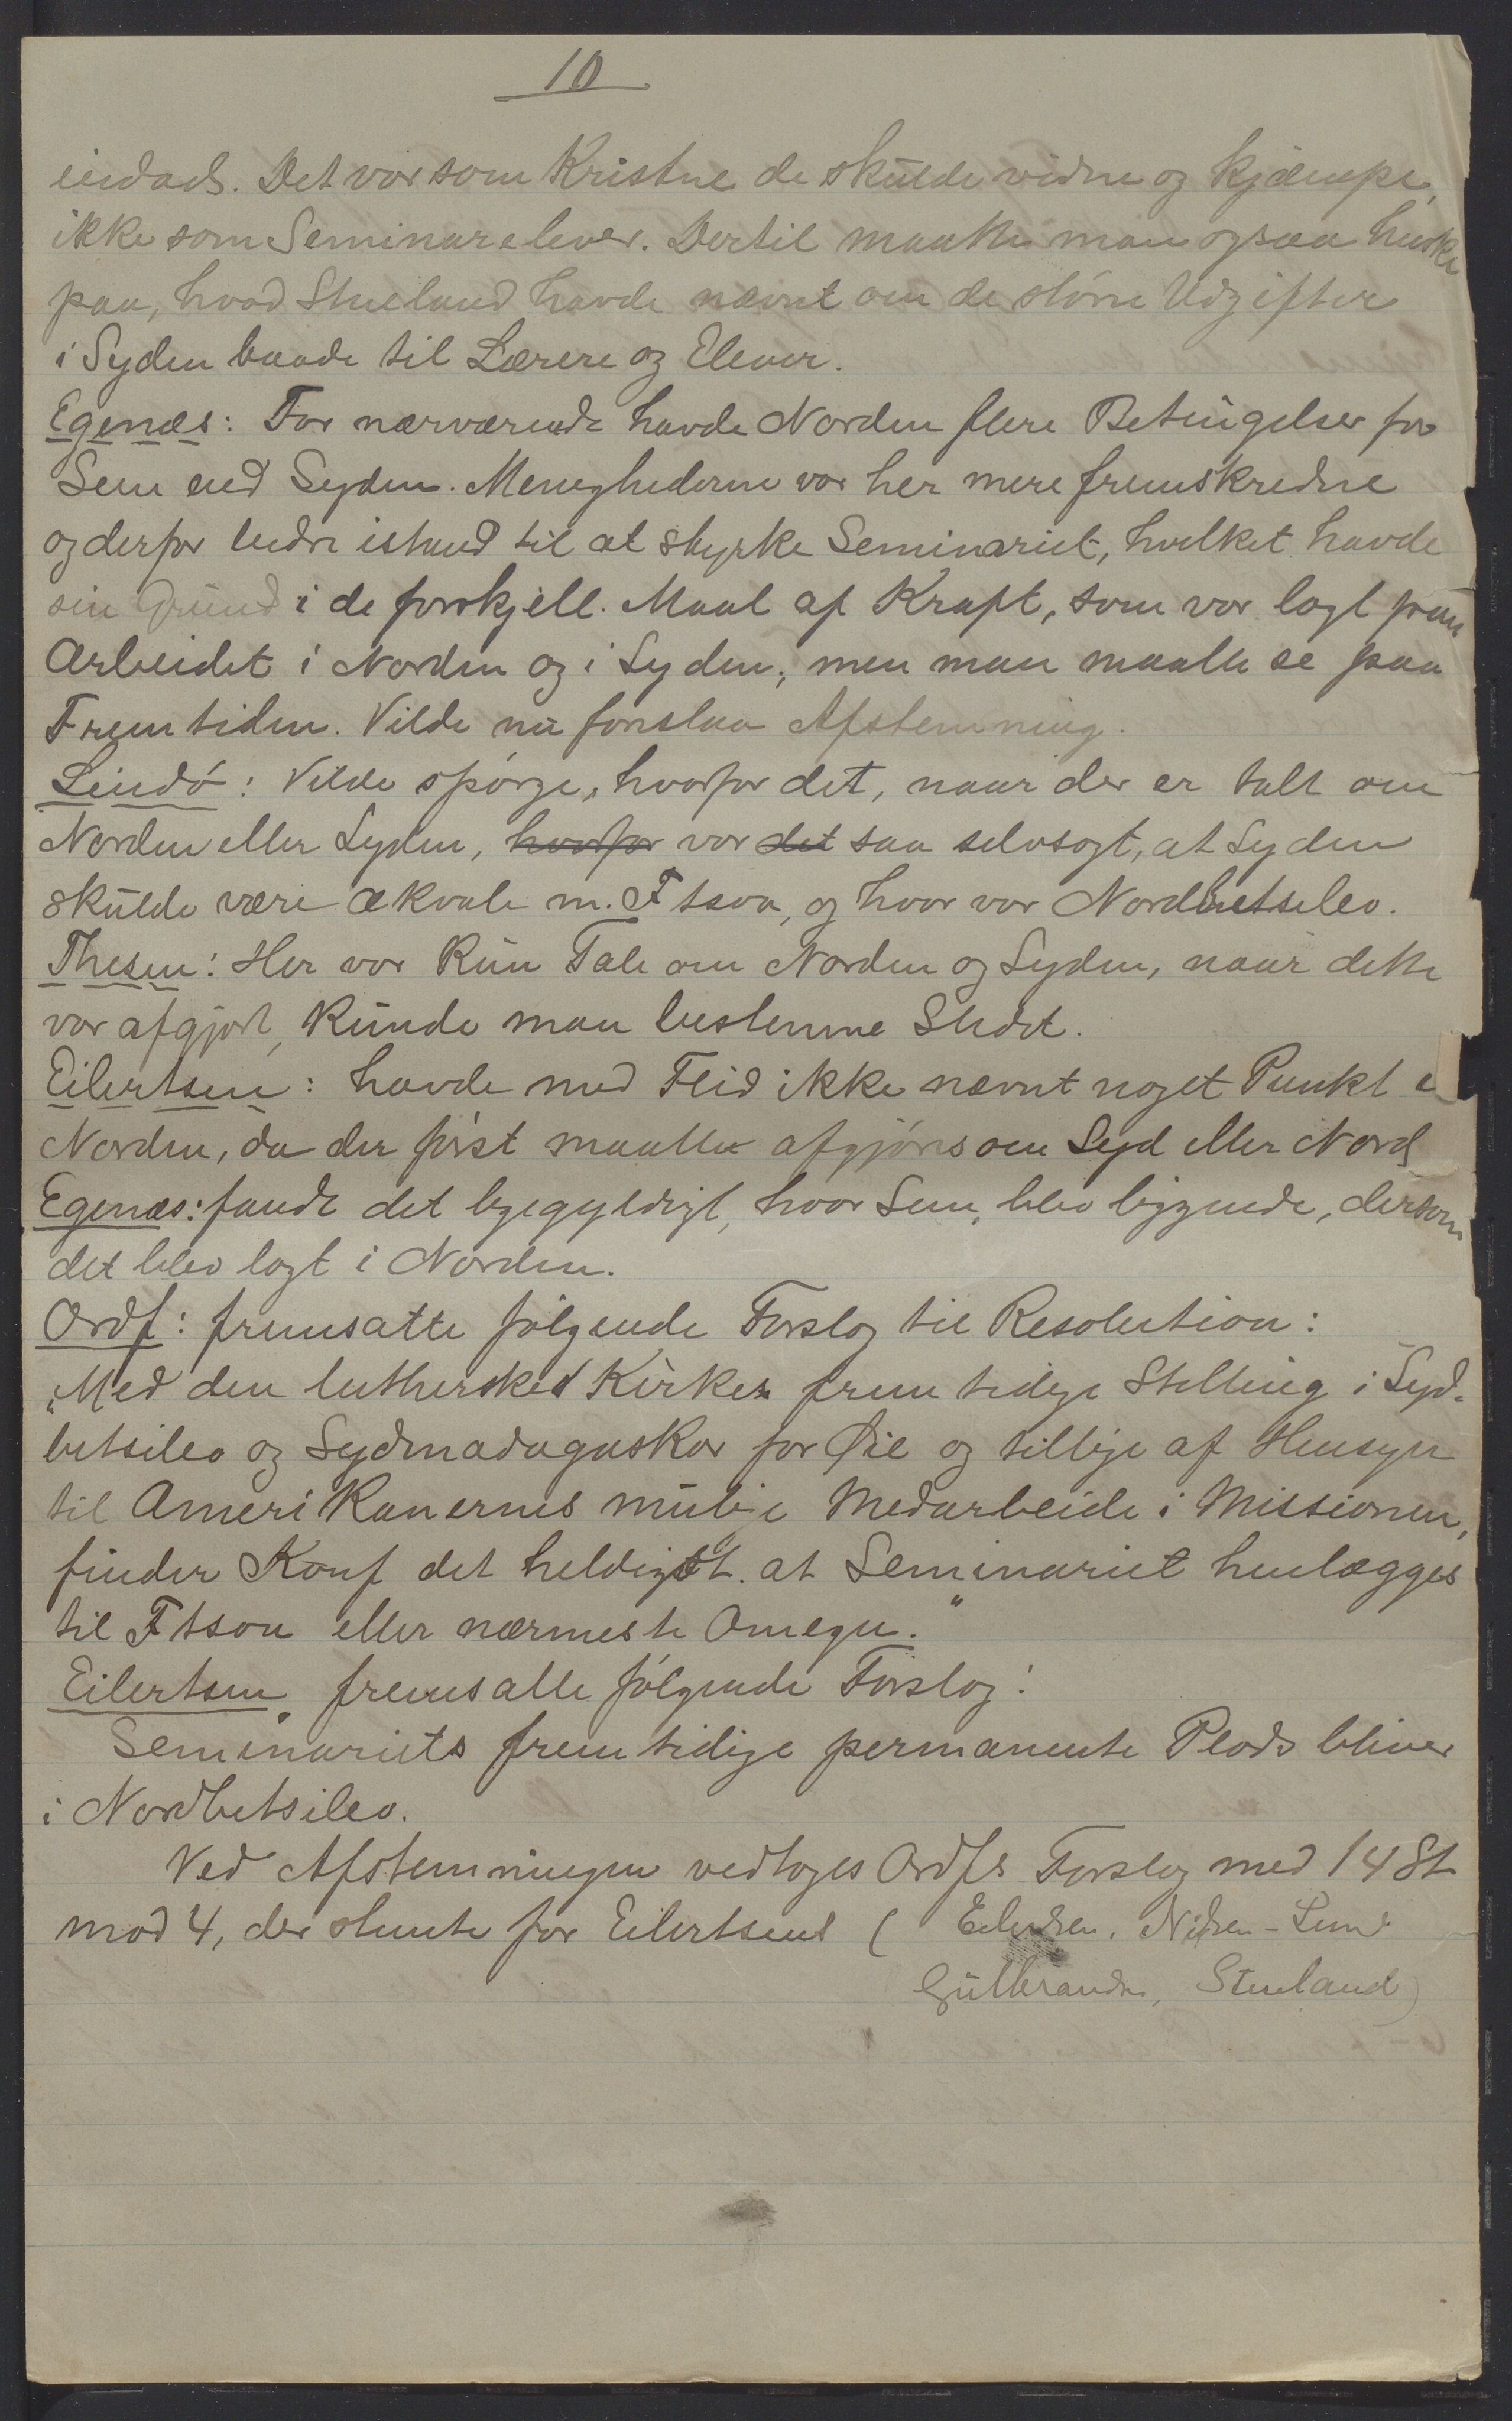 10
indad. Det var som Kristne de skulde vidne og kjæmpe,
ikke som Seminarelever. Dertil maatte man ogsaa huske
paa, hvad Stueland havde nævnt om de større Udgifter
i Syden baade til Lærere og Elever.
Egenæs: For nærværende havde Norden flere Betingelser for
Sem end Syden. Menighederne var her mere fremskredne
og derfor bedre istand til at styrke Seminariet, hvilket havde
sin Grund i de forskjell. Maal af Kraft, som var lagt paa
Arbeidet i Norden og i Syden; men man maatte se paa
Fremtiden. Vilde nu foreslaa Afstemning.
Lindø: Vilde spørge, hvorfor det, naar der er talt om
Norden eller Syden, hvorfor var det saa selvsagt, at Syden
skulde være ækvale m. Ftsoa, og hvor var Nordbetsileo.
Thesen: Her var kun Tale om Norden og Syden, naar dette
var afgjort, kunde man bestemme Stedet.
Eilertsen: havde med Flid ikke nævnt noget Punkt i
Norden, da der først maatte afgjøres om Syd eller Nord
Egenæs: fandt det ligegyldigt, hvor Sem. blev liggende, dersom
det blev lagt i Norden.
Ordf: fremsatte følgende Forslag til Resolution:
"Med den lutherske Kirkes fremtidige Stilling i Syd-
betsileo og Sydmadagaskar for Øie og tillige af Hensyn
til Amerikanernes mulige Medarbeide i Missionen,
finder Konf det heldigst at Seminariet henlægges
til Ftsoa eller nærmeste Omegn."
Eilertsen fremsatte følgende Forslag:
Seminariets fremtidige permanente Plads bliver
i Nordbetsileo.
Ved Afstemningen vedtoges Ordfs Forslag med 14 St
mod 4, der stemte for Eilertsens ( Eilertsen, Nilsen-Lund
Gulbrandsen, Stueland)